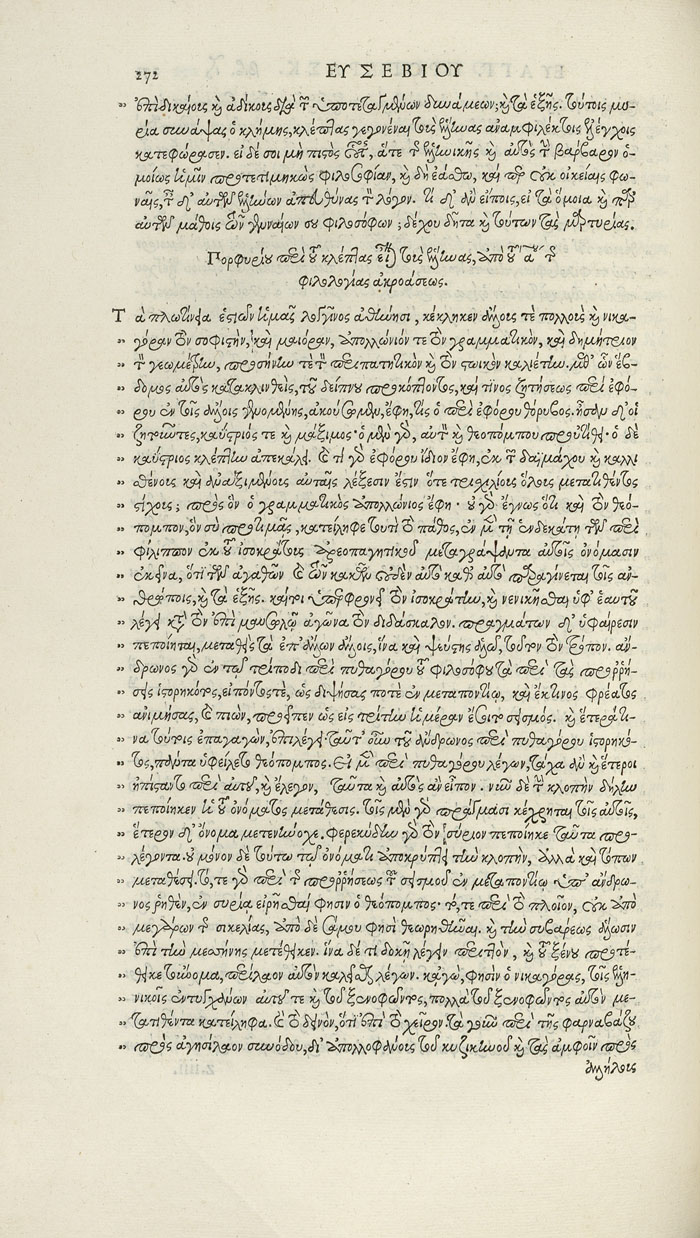 272 ΕΥΣΕΒΙΟΥ
„ ἐπιδικαίοις καὶ ἀδίκοις διὰ τῶν ὑποτεταγμένων δυνάμεων; καὶ τὰ ἑξῆς. τούτοις μυ-
ρία συνάψας ὁ κλήμης, κλέπτας γεγονέναι τοὺς ἕλληνας ἀναμφιλέκτοις ἐλέγχοις
κατεφώρασεν. εἰ δέ σοι μὴ πιστὸς οὗτος, ἅτε τῆς ἑλληνικῆς καὶ αὐτὸς τὴν βάρβαρον ὁ-
μοίως ἡμῖν προτετιμηκὼς φιλοσοφίαν, καὶ δὴ ἐάσθω, καίπερ οὐκ οἰκείαις φω-
ναῖς, ταῖς δ' αὐτῶν ἑλλήνων ἀπευθύνας τὸν λόγον. τί δ' ἂν εἴποις, εἰ τὰ ὅμοια καὶ παρ'
αὐτῶν μάθοις τῶν γενναίων σου φιλοσόφων; δέχου δῆτα καὶ τούτων τὰς μαρτυρίας.
Πορφυρίου περὶ τοῦ κλέπτας εἶναι τοὺς ἕλληνας, ἀπὸ τοῦ α' τῆς
φιλολογίας ἀκροάσεως.
Τὰ πλωτίνεια ἑστιῶν ἡμᾶς λογγῖνος ἀθήνησι, κέκληκεν ἄλλους τε πολλοὺς καὶ νικα-
„ γόραν τὸν σοφιστήν, καὶ μαιόραν, ἀπολλώνιόν τε τὸν γραμματικόν, καὶ δημήτριον
„ τὸν γεωμέτρην, προσήνην τε τὸν περιπατητικὸν καὶ τὸν στωικὸν καλιέτην. μεθ' ὧν ἕβ-
„ δομος αὐτὸς κατακλινθείς, τοῦ δείπνου προκόπτοντος, καί τινος ζητήσεως περὶ ἐφό-
„ ρου ἐν τοῖς ἄλλοις γενομένης, ἀκούσωμεν, ἔφη, τίς ὁ περὶ ἐφόρου θόρυβος. ἦσαν δ' οἱ
„ ζητοῦντες, καύστριός τε καὶ μάξιμος· ὁ μὲν γὰρ, αὐτὸν καὶ θεοπόμπου προυτίθει· ὁ δὲ
„ καύστριος κλέπτην ἀπεκάλει. καὶ τί γὰρ ἐφόρου ἴδιον ἔφη, ἐκ τῶν δαϊμάχου καὶ καλλι
„ σθένους καὶ ἀναξιμένους αὐταῖς λέξεσιν ἔστιν ὅτε τρισχιλίους ὅλους μετατιθέντος
„ στίχους; πρὸς ὃν ὁ γραμματικὸς ἀπολλώνιος ἔφη· οὐ γὰρ ἔγνως ὅτι καὶ τὸν θεό-
„ πομπον, ὃν σὺ προτιμᾷς, κατείληφε τουτὶ τὸ πάθος, ἐν μὲν τῇ ἑνδεκάτῃ τῶν περὶ
„ φίλιππον ἐκ τοῦ ἰσοκράτους ἀρεοπαγητικοῦ μεταγράψαντα αὐτοῖς ὀνόμασιν
„ ἐκεῖνα, ὅτι τῶν ἀγαθῶν καὶ τῶν κακῶν οὐδὲν αὐτὸ καθ' αὑτὸ παραγίνεται τοῖς ἀν-
„ θρώποις, καὶ τὰ ἑξῆς. καίτοι ὑπερφρονεῖ τὸν ἰσοκράτην, καὶ νενικῆσθαι ὑφ' ἑαυτοῦ
„ λέγει κατὰ τὸν ἐπὶ μαυσωλῷ ἀγῶνα τὸν διδάσκαλον. πραγμάτων δ' ὑφαίρεσιν
„ πεποίηται, μεταθεὶς τὰ ἐπ' ἄλλων ἄλλοις, ἵνα καὶ ψεύστης ἁλῷ, τοῦτον τὸν τρόπον. ἄν-
„ δρωνος γὰρ ἐν τῷ τρίποδι περὶ πυθαγόρου τοῦ φιλοσόφου τὰ περὶ τὰς προρρή-
„ σεις ἱστορηκότος, εἰπόντος τὲ, ὡς διψήσας ποτὲ ἐν μεταποντίῳ, καὶ ἔκ τινος φρέατος
„ ἀνιμήσας, καὶ πιών, προεῖπεν ὡς εἰς τρίτην ἡμέραν ἔσοιτο σεισμός. καὶ ἕτερά τι-
„ να τούτοις ἐπαγαγών, ἐπιλέγει· ταῦτ' οὖν τοῦ ἄνδρωνος περὶ πυθαγόρου ἱστορηκό-
„ τος, πάντα ὑφείλετο θεόπομπος. εἰ μὲν περὶ πυθαγόρου λέγων, τάχα ἂν καὶ ἕτεροι
„ ἠπίσταντο περὶ αὐτοῦ, καὶ ἔλεγον, ταῦτα καὶ αὐτὸς ἀνεῖπον. νῦν δὲ τὴν κλοπὴν δήλην
„ πεποίηκεν ἡ τοῦ ὀνόματος μετάθεσις. τοῖς μὲν γὰρ πράγμασι κέχρηται τοῖς αὐτοῖς,
„ ἕτερον δ' ὄνομα μετενήνοχε. φερεκύδην γὰρ τὸν σύριον πεποίηκε ταῦτα προ-
„ λέγοντα. οὐ μόνον δὲ τούτῳ τῷ ὀνόματι ἀποκρύπτει τὴν κλοπήν, ἀλλὰ καὶ τόπων
„ μεταθέσει. τό, τε γὰρ περὶ τῆς προρρήσεως τοῦ σεισμοῦ ἐν μεταποντίῳ ὑπ' ἄνδρω-
„ νος ῥηθέν, ἐν συρίᾳ εἰρῆσθαί φησιν ὁ θεόπομπος· τό, τε περὶ τὸ πλοῖον, οὐκ ἀπὸ
„ μεγάρων τῆς σικελίας, ἀπὸ δὲ σάμου φησὶ θεωρηθῆναι. καὶ τὴν συβάρεως ἅλωσιν
„ ἐπὶ τὴν μεσήνης μετέθηκεν. ἵνα δέ τι δοκῇ λέγειν περιττόν, καὶ τοῦ ξένου προστέ-
„ θεικε τοὔνομα, περίλαον αὐτὸν καλεῖσθαι λέγων. κἀγώ, φησὶν ὁ νικαγόρας, τοῖς ἑλλη-
„ νικοῖς ἐντυγχάνων αὐτοῦ τε καὶ τοῦ ξενοφῶντος, πολλὰ τοῦ ξενοφῶντος αὐτὸν με-
„ τατιθέντα κατείληφα. καὶ τὸ δεινόν, ὅτι ἐπὶ τὸ χεῖρον. τὰ γοῦν περὶ τῆς φαρναβάζου
„ πρὸς ἀγησίλαον συνόδου, δι' ἀπολλοφάνους τοῦ κυζικηνοῦ καὶ τὰς ἀμφοῖν πρὸς
ἀλλήλους